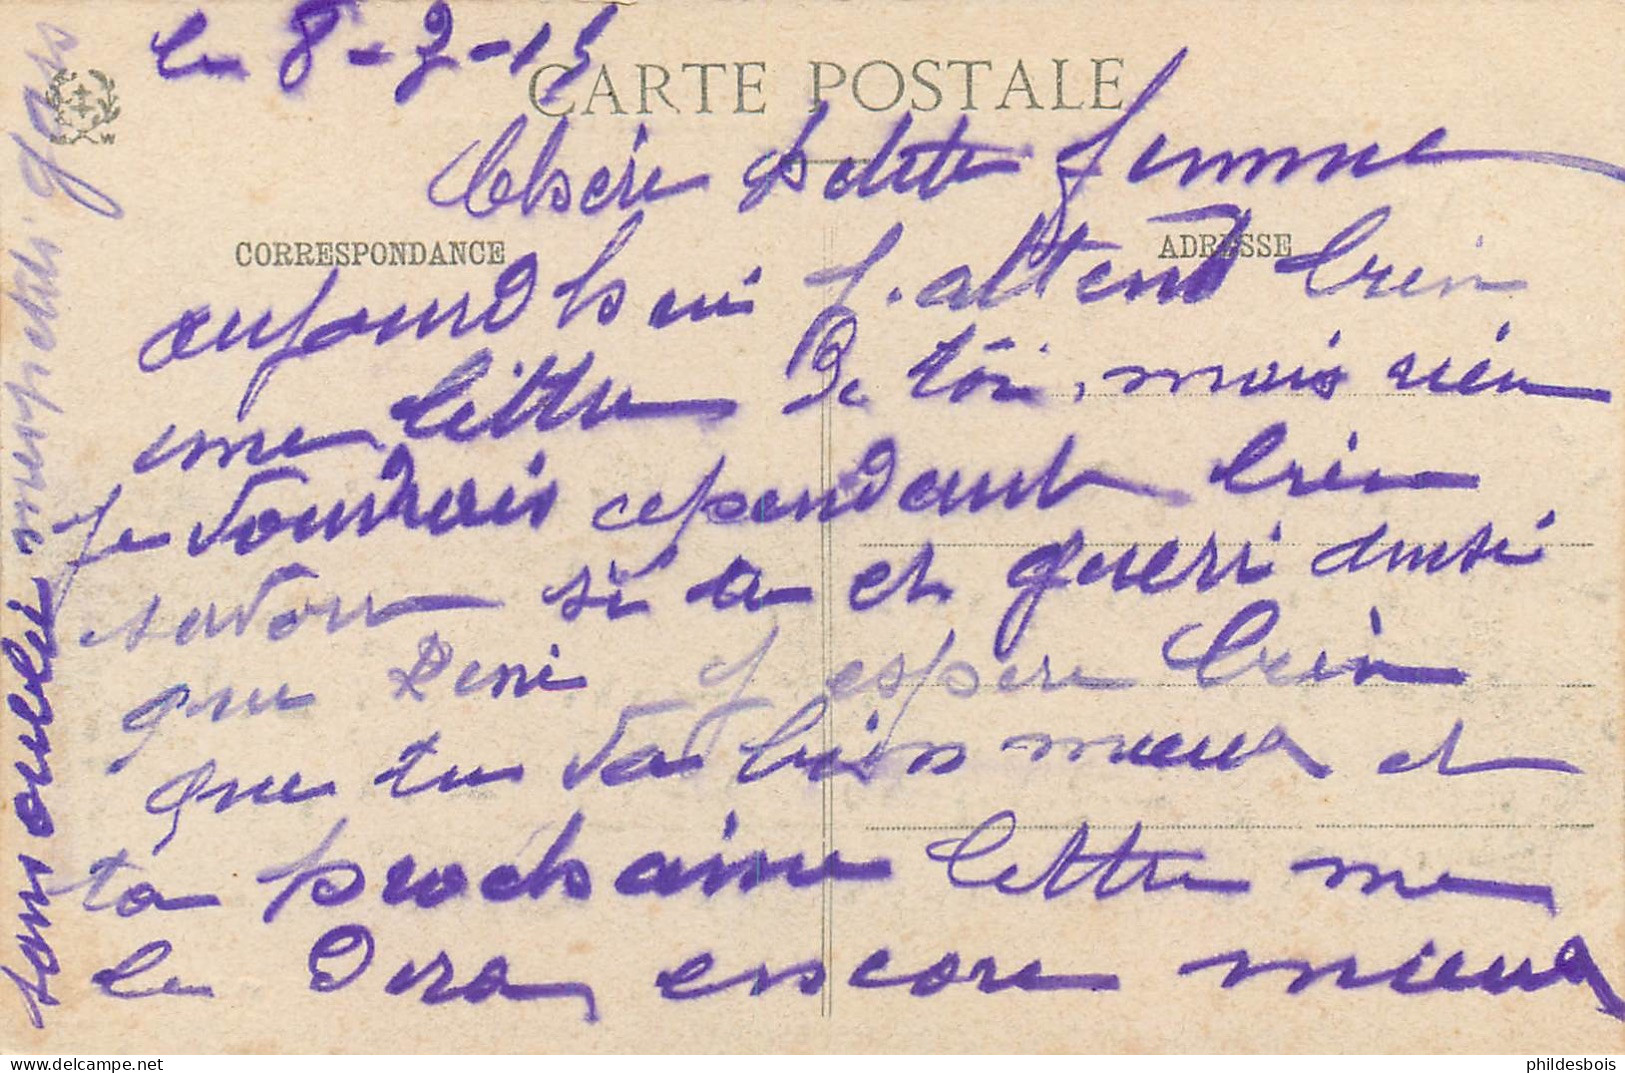 le 8-2-15
CARTE POSTALE
Chère petite femme
CORRESPONDANCE
ADRESSE
aujourd'hui j.attend bien
une lettre De toi, mais rien
je voudrais cependant bien
savoir si tu et gueri ainsi
que Réné j espere bien
que tu va bien mieux et
ta prochaine lettre me
le Dira encore mieux
sans oublié mes petits gas
delcampe.net
phildesbois